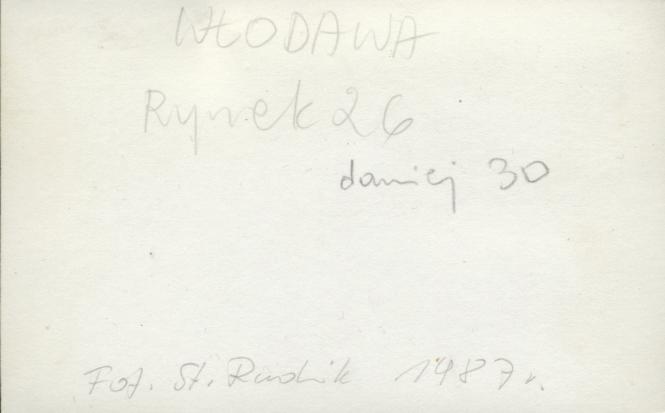 WŁODAWA
Rynek 26
dawniej 30
Fot. St. Rudnik 1987 r.